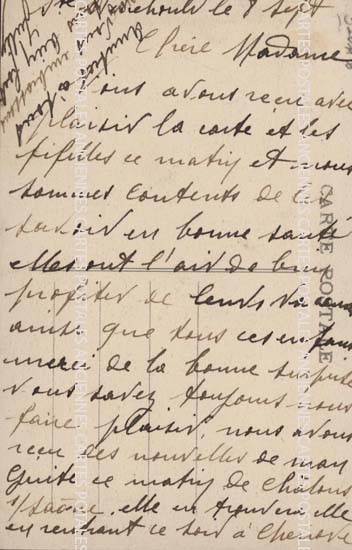 le 8 Sept
Chère Madame
Nous avons reçu avec
plaisir la carte et les
ce matin et nous
sommes contents de les
savoir en bonne santé
elles ont l'air de bien
profiter de leurs vacances
ainsi que tous ces enfants
merci de la bonne surprise
vous savez toujours nous
faire plaisir, nous avons
reçu des nouvelles de mon
ce matin de Chalons
s/Saône, elle en trouvera elle
en rentrant ce soir à Chenôve
CARTE POSTALE
CARTES POSTALES ANCIENNES